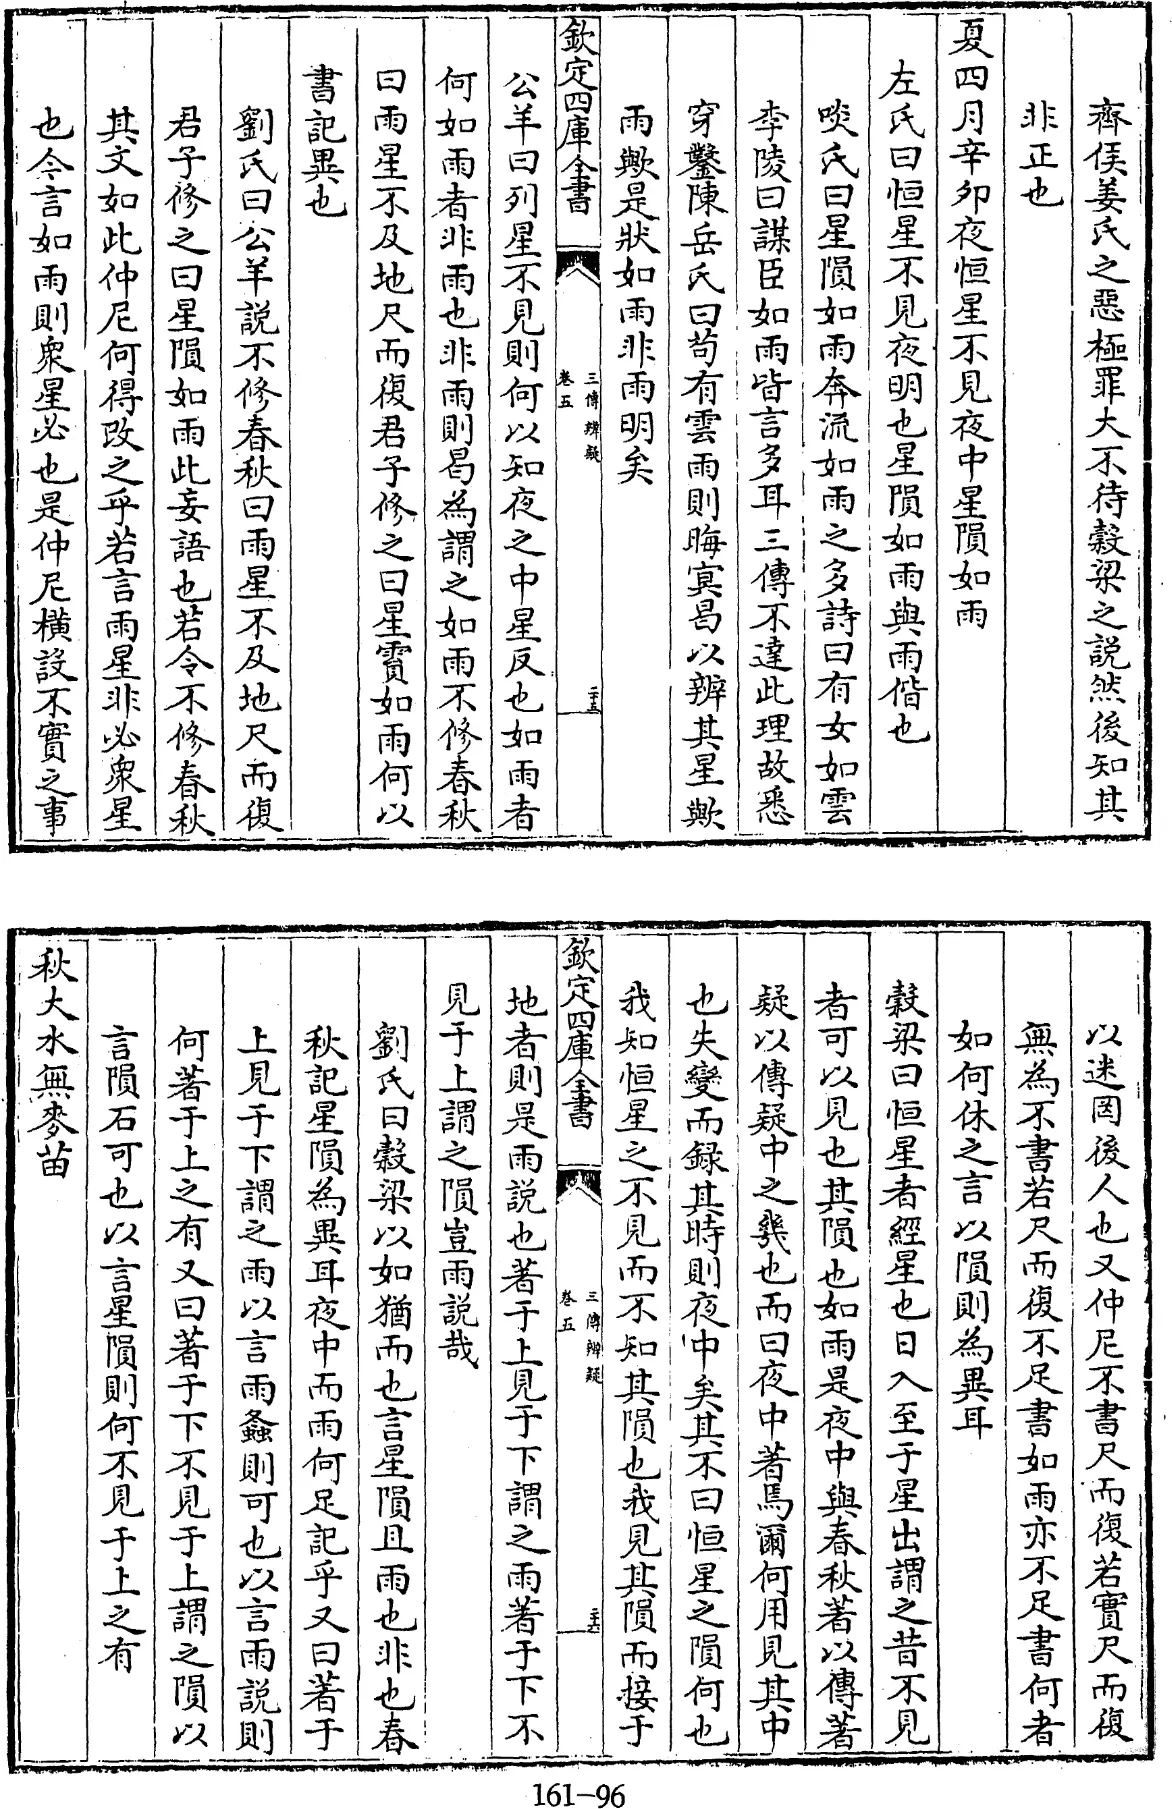 齊侯姜氏之惡極罪大不待穀梁之說然後知其
非正也
夏四月辛卯夜恒星不見夜中星隕如雨
左氏曰恒星不見夜明也星隕如雨與雨偕也
啖氏曰星隕如雨奔流如雨之多詩曰有女如雲
李陵曰謀臣如雨皆言多耳三傳不達此理故悉
穿鑿陳岳氏曰苟有雲雨則晦冥曷以辨其星歟
雨歟是狀如雨非雨明矣
欽定四庫全書
三傳辨疑
卷五
二十五
公羊曰列星不見則何以知夜之中星反也如雨者
何如雨者非雨也非雨則曷為謂之如雨不修春秋
曰雨星不及地尺而復君子修之曰星霣如雨何以
書記異也
劉氏曰公羊說不修春秋曰雨星不及地尺而復
君子修之曰星隕如雨此妄語也若令不修春秋
其文如此仲尼何得改之乎若言雨星非必衆星
也今言如雨則衆星必也是仲尼橫設不實之事
以迷罔後人也又仲尼不書尺而復若實尺而復
無為不書若尺而復不足書如雨亦不足書何者
如何休之言以隕則為異耳
穀梁曰恒星者經星也日入至于星出謂之昔不見
者可以見也其隕也如雨是夜中與春秋著以傳著
疑以傳疑中之幾也而曰夜中著焉爾何用見其中
也失變而録其時則夜中矣其不曰恒星之隕何也
我知恒星之不見而不知其隕也我見其隕而接于
欽定四庫全書
三傳辨疑
卷五
二十六
地者則是雨說也著于上見于下謂之雨著于下不
見于上謂之隕豈雨說哉
劉氏曰穀梁以如猶而也言星隕且雨也非也春
秋記星隕為異耳夜中而雨何足記乎又曰著于
上見于下謂之雨以言雨螽則可也以言雨說則
何著于上之有又曰著于下不見于上謂之隕以
言隕石可也以言星隕則何不見于上之有
秋大水無麥苗
161-96